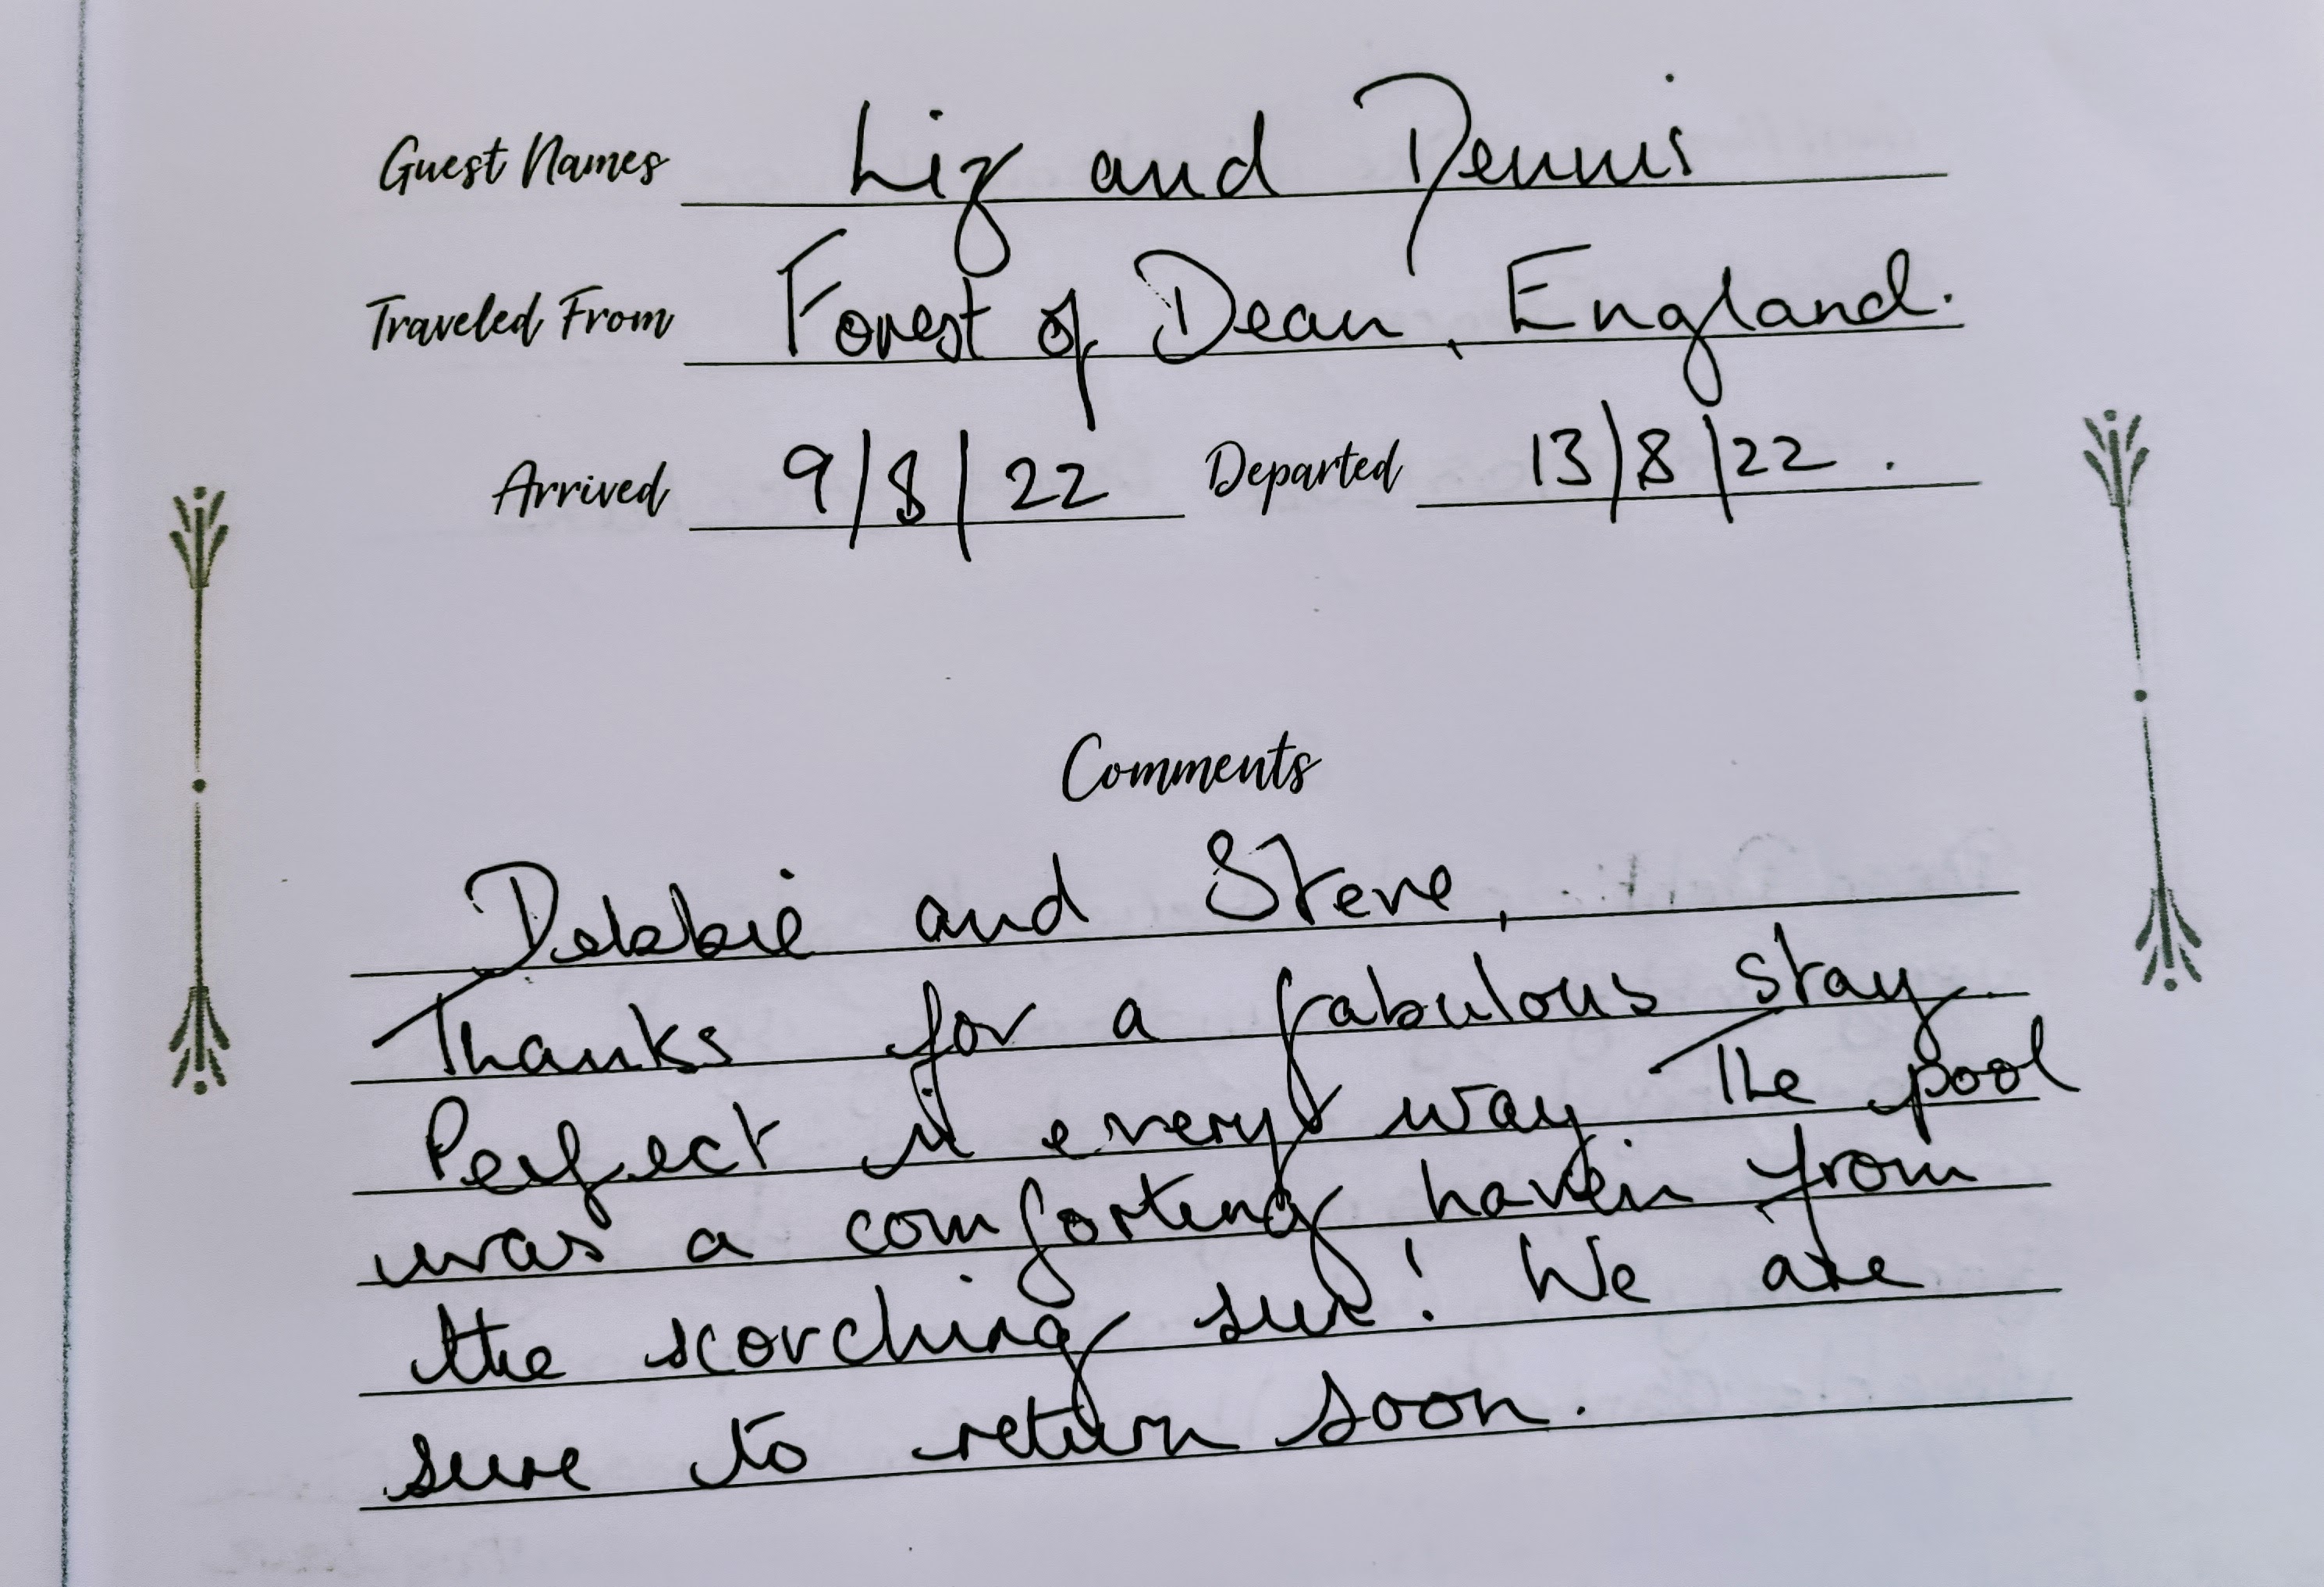 Guest Names Liz and Dennis
Traveled From Forest of Dean, England.
Arrived 9/8/22 Departed 13/8/22.
Comments
Debbie and Steve,
Thanks for a fabulous stay.
Perfect in every way The pool
was a comforting haven from
the scorching sun! We are
sure to return soon.